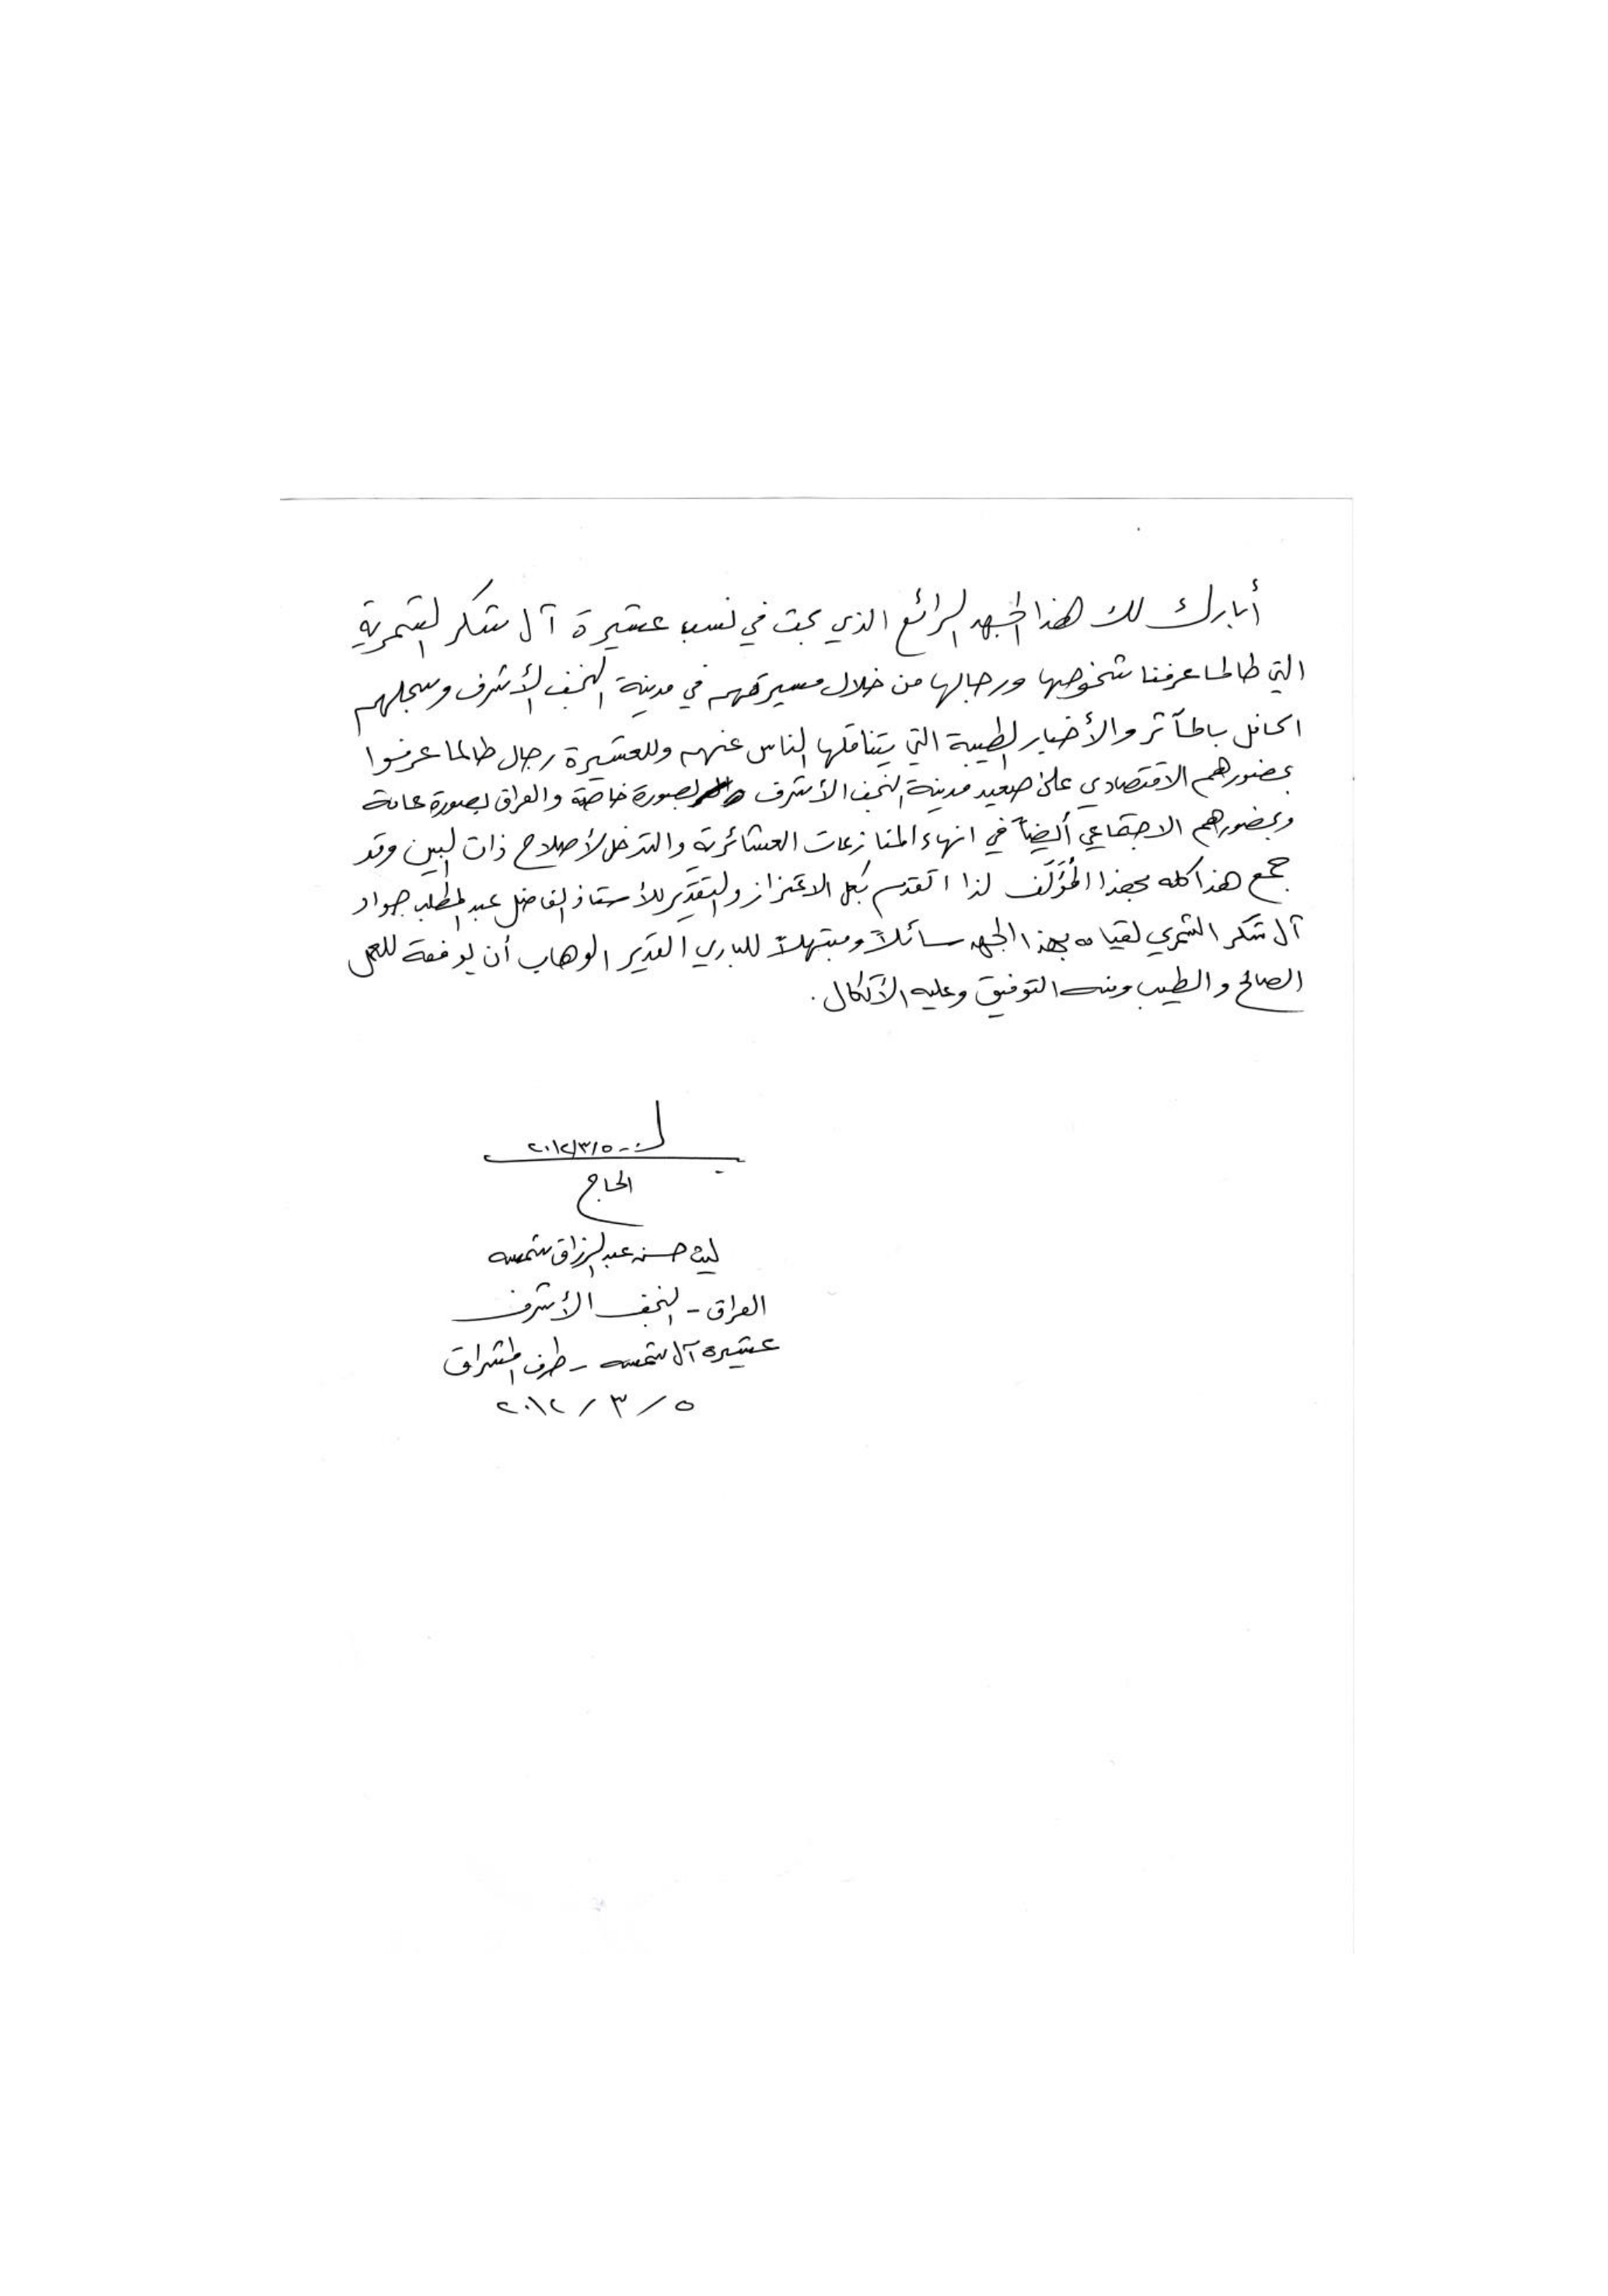 أبارك لك هذا الجهد الرائع الذي بحث في نسب عشيرة آل شكر الشمرية
التي طالما عرفنا شخوصها ورجالها من خلال مسيرتهم في مدينة النجف الأشرف وسجلهم
الحافل بالمآثر والأخبار الطيبة التي يتناقلها الناس عنهم وللعشيرة رجال طالما عرفوا
بحضورهم الاقتصادي على صعيد مدينة النجف الأشرف بصورة خاصة والعراق بصورة عامة
وبحضورهم الاجتماعي أيضاً في انهاء المنازعات العشائرية والتدخل لأصلاح ذات البين وقد
جمع هذا كله بهذا المُؤَلَف لذا اتقدم بكل الاعتزاز والتقدير للأستاذ الفاضل عبد المطلب جواد
آل شكر الشمري لقيامه بهذا الجهد سائلاً ومبتهلاً للباري القدير الوهاب أن يوفقه للعمل
الصالح والطيب ومنه التوفيق وعليه الأتكال.
٢٠١٢/٣/٥
الحاج
ليث حسن عبد الرزاق شمسه
العراق - النجف الأشرف
عشيرة آل شمسه - طرف المشراق
٥ / ٣ / ٢٠١٢